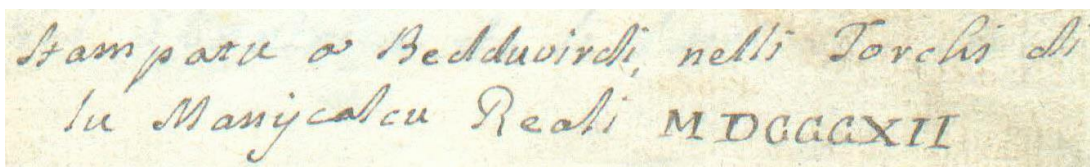 Stampatu a Bedduvirdi, nelli Torchi di
lu Manijcalcu Reali MDCCCXII